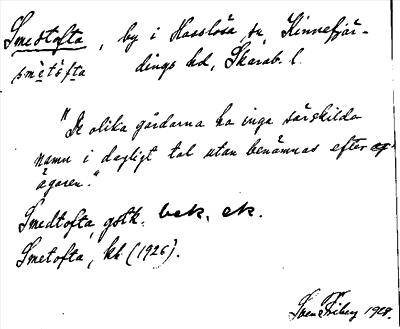 Smedtofta, by i Hasslösa sn, Kinnefjär-
smètòfta dings hd, Skarab. l.
"De olika gårdarna ha inga särskilda
namn i dagligt tal utan benämnas efter
ägaren."
Smedtofta, gstk. bek. ek.
Smetofta, kb (1926).
Sven Friberg 1928.